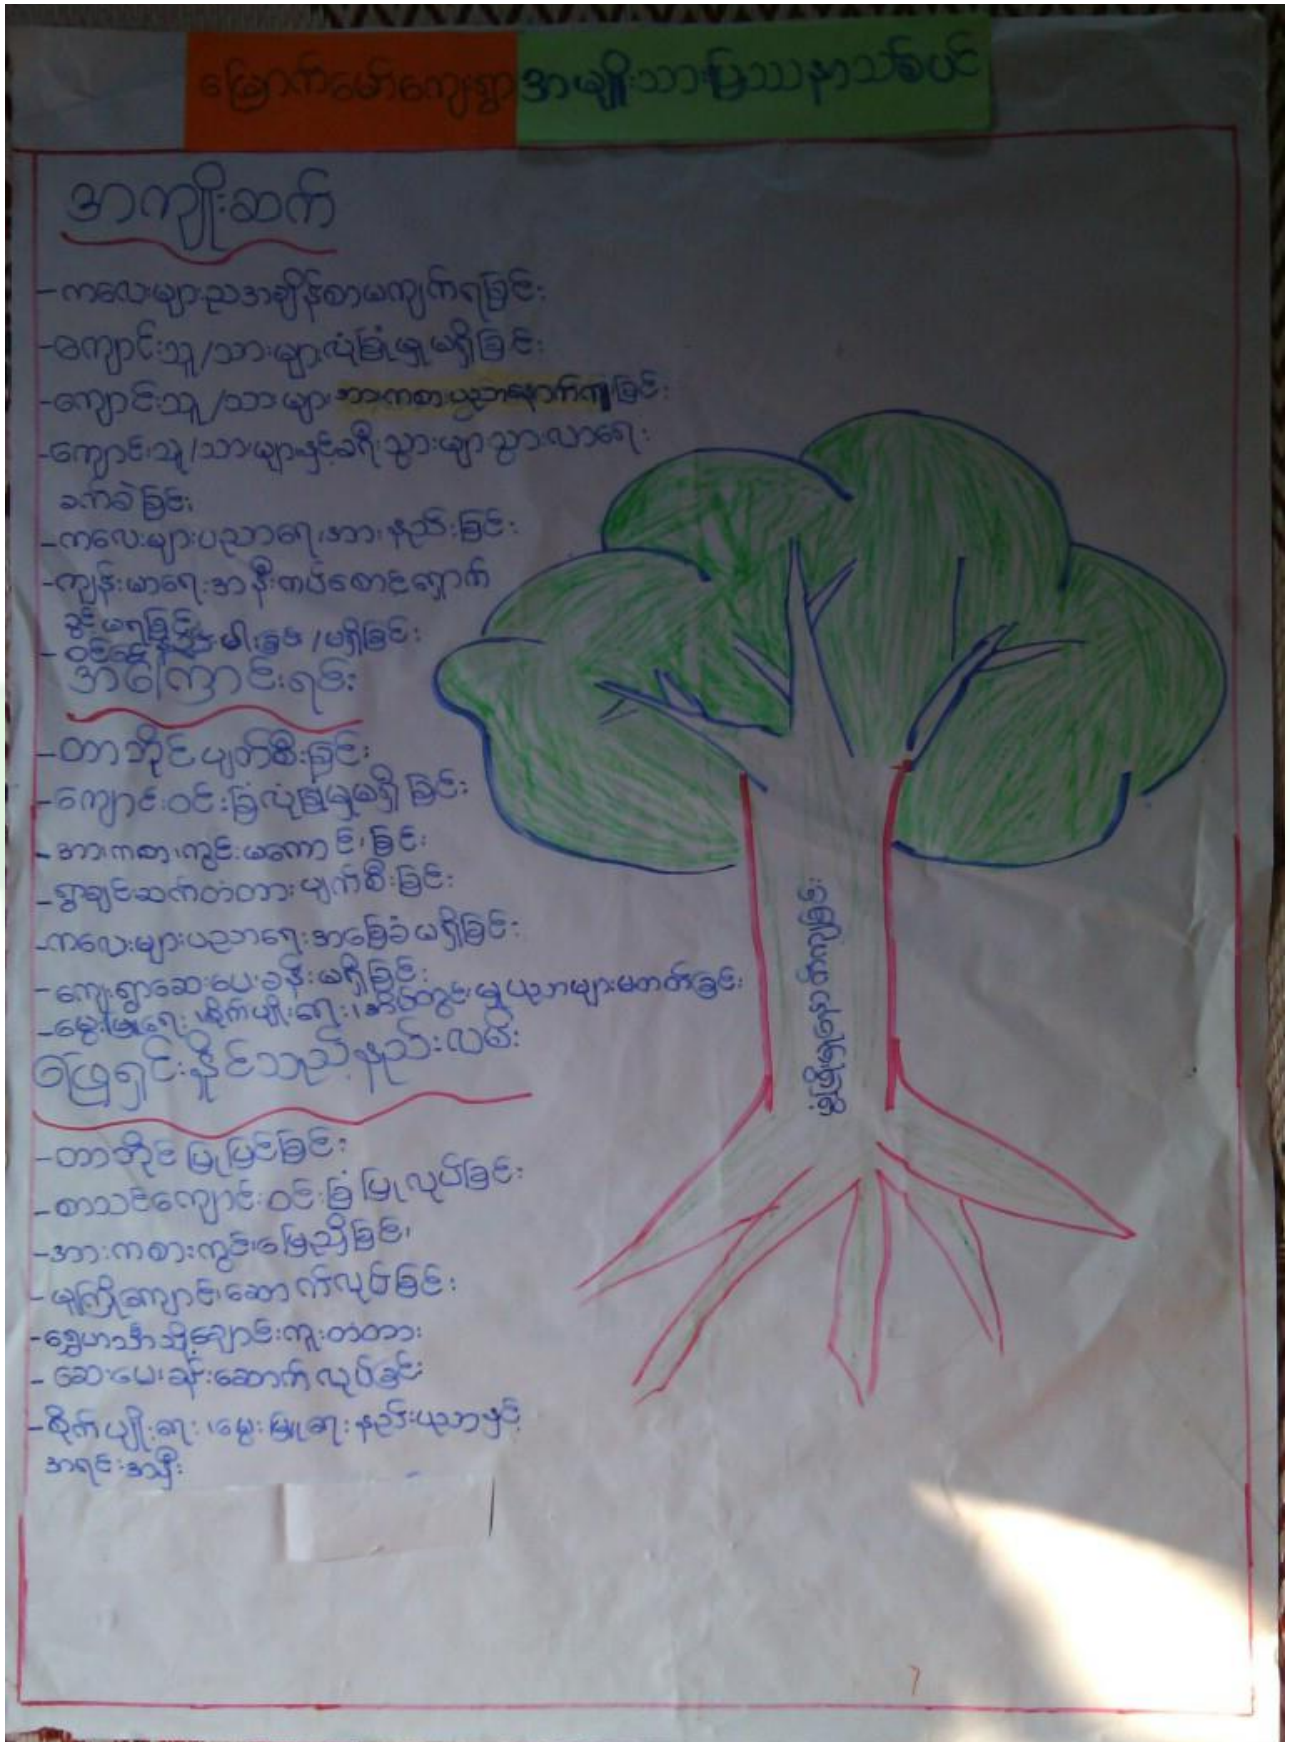 မြောက်မော်ကျေးရွာ အမျိုးသားပြဿနာသစ်ပင်
အကျိုးဆက်
-ကလေးများညအချိန်စာမကျက်ရခြင်း
-ကျောင်းသူ/သားများလုံခြုံမှုမရှိခြင်း
-ကျောင်းသူ/သားများအားကစားပညာနောက်ကျခြင်း
-ကျောင်းသူ/သားများနှင့်ခရီးသွားများသွားလာရေး
ခက်ခဲခြင်း
-ကလေးများပညာရေးအားနည်းခြင်း
-ကျန်းမာရေးအနီးကပ်စောင့်ရှောက်
ခွင့်မရခြင်း
-ဝင်ငွေနည်းပါးခြင်း/မရှိခြင်း
အကြောင်းရင်း
-တာဘိုင်ပျတ်စီးခြင်း
-ကျောင်းဝင်းခြံလုံခြုံမှုမရှိခြင်း
-အားကစားကွင်းမကောင်းခြင်း
-ရွာချင်းဆက်တံတားပျက်စီးခြင်း
-ကလေးများပညာရေးအခြေခံမရှိခြင်း
-ကျေးရွာဆေးပေးခန်းမရှိခြင်း
-မွေးမြူရေး၊စိုက်ပျိုးရေး၊အိမ်တွင်းမှုပညာများမတတ်ခြင်း
ဖြေရှင်းနိုင်သည့်နည်းလမ်း
-တာဘိုင်ပြုပြင်ခြင်း
-စာသင်ကျောင်းဝင်းခြံပြုလုပ်ခြင်း
-အားကစားကွင်းမြေညှိခြင်း
-မူကြိုကျောင်းဆောက်လုပ်ခြင်း
-ရွှေဟင်္သာသို့ချောင်းကူးတံတား
-ဆေးပေးခန်းဆောက်လုပ်ခြင်း
-စိုက်ပျိုးရေး၊မွေးမြူရေးနည်းပညာနှင့်
အရင်းအနှီး
ဖွံ့ဖြိုးမှုနောက်ကျခြင်း